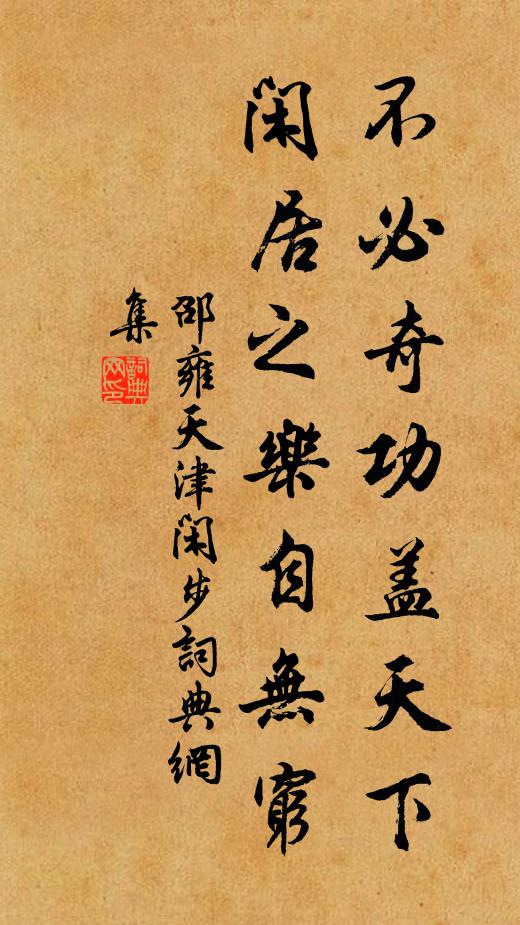 不必奇功蓋天下
閑居之樂自無窮
邵雍天津閑步詞典網
集
詞典
网印